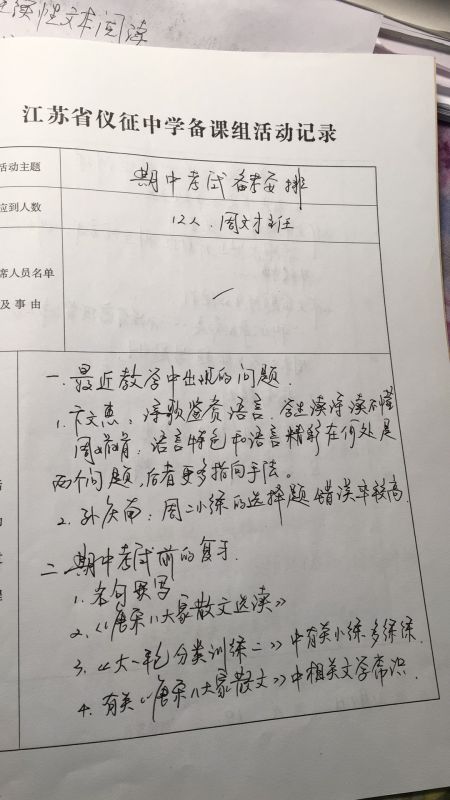 性文本阅读
江苏省仪征中学备课组活动记录
活动主题
期中考试备考安排
应到人数
12人、周文才主任
席人员名单
及事由
一、最近教学中出现的问题.
1. 卞文惠：诗歌鉴赏语言. 学生读诗读不懂
周：语言特色和语言精彩在何处是
两个问题,后者更多指向手法。
2. 孙庆南：周二小练的选择题错误率较高.
二、期中考试前的复习.
1. 名句默写
2.《唐宋八大家散文选读》
3.《大一轮分类训练二》中有关小练多练练.
4. 有关《唐宋八大家散文》中相关文学常识.